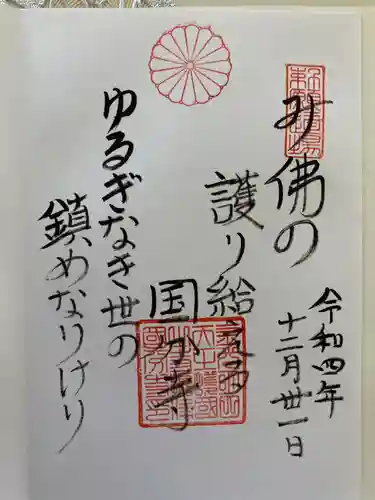 み佛の
護り給える
国分寺
ゆるぎなき世の
鎮めなりけり
令和四年
十二月丗一日